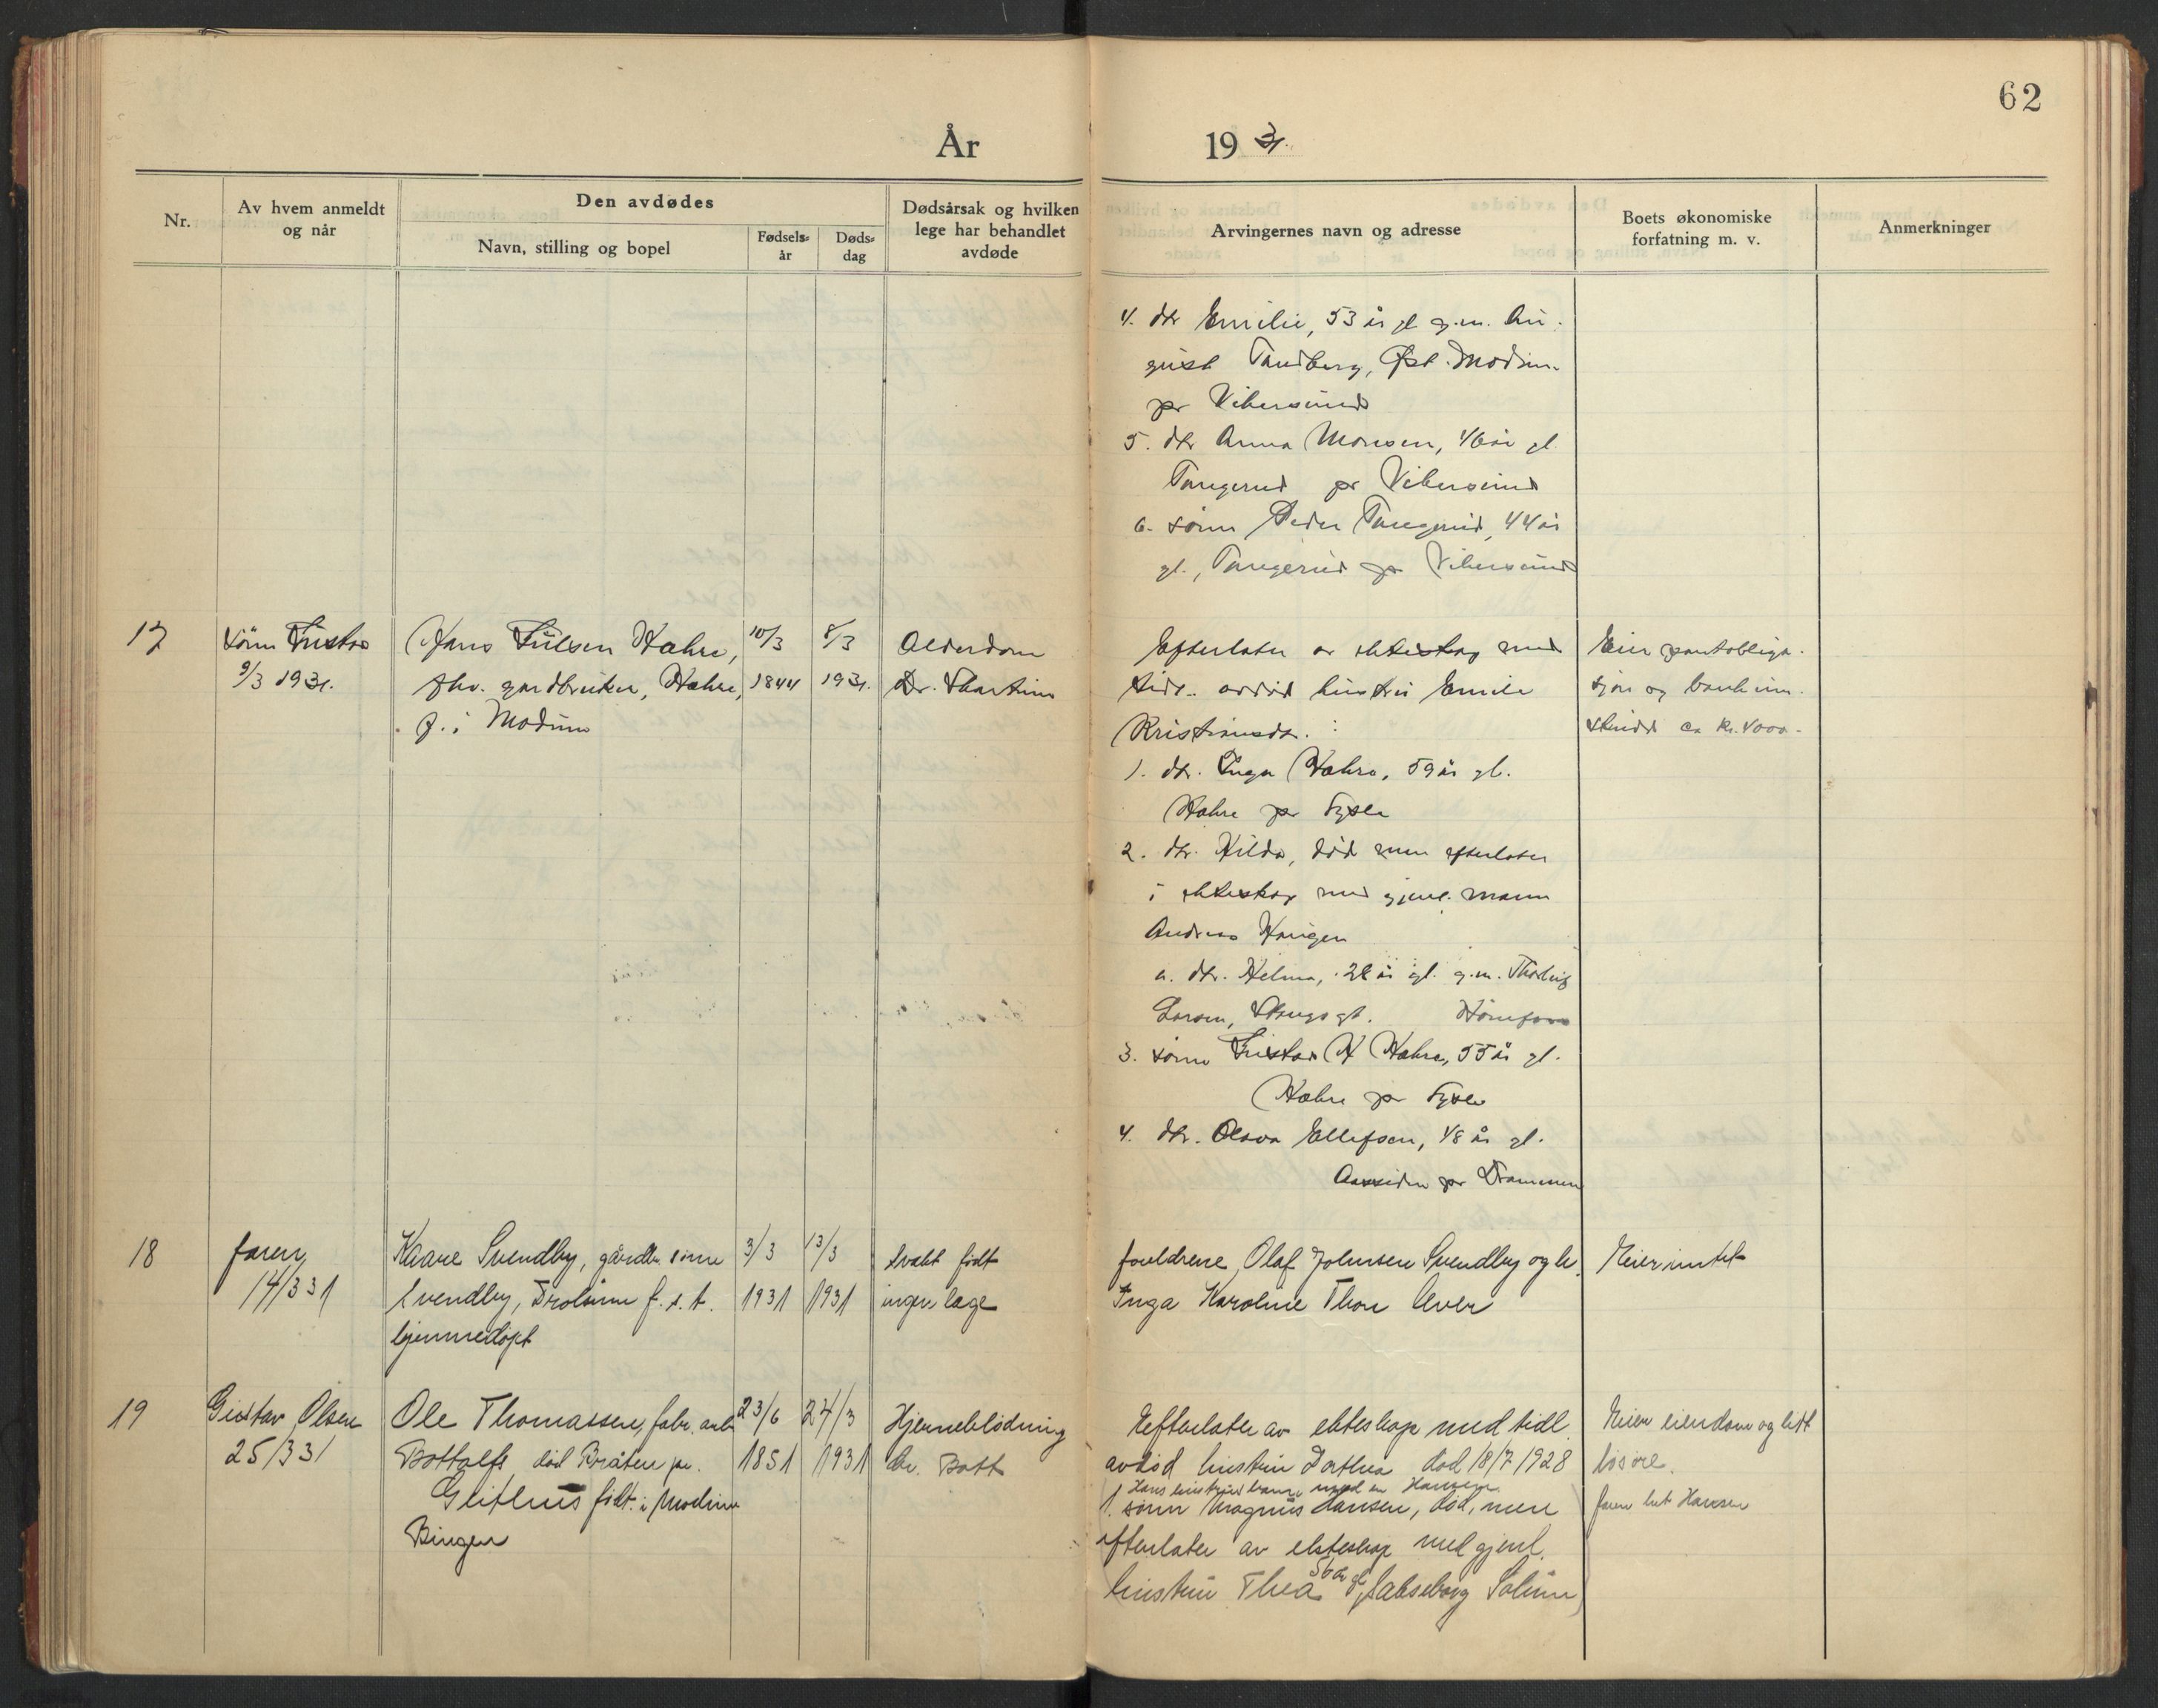 62
År 19 31.
Nr.
Av hvem anmeldt
og når
Den avdødes
Navn, stilling og bopel
Fødsels-
år
Døds-
dag
Dødsårsak og hvilken
lege har behandlet
avdøde
Arvingernes navn og adresse
Boets økonomiske
forfatning m. v.
Anmerkninger
4. dtr Emilie, 53 år gl g.m. Au-
gust Tandberg, Øst. Modum
pr Vikersund
5. dtr Anna Monsen, 46 år gl.
Tangerud pr Vikersund
6. sønn Peder Tangerud, 44 år
gl., Tangerud pr Vikersund
17
sønn Gustav
9/3 1931.
Hans Gulsen Hæhre,
fhv. gardbruker, Hæhre,
f. i Modum
10/3
1844
8/3
1931.
Alderdom
Dr. Thartium
Efterlater av ekteskap med
tidl. avdød hustru Emilie
Kristiansdr. :
1. dtr. Inga Hæhre, 59 år gl.
Hæhre pr Sysle
2. dtr. Hilda, død men efterlater
i ekteskap med gjenl. mann
Andreas Haugen
a. dtr. Helma, 28 år gl. g.m. Thorleif
Larsen, Stangs gt. Hønefoss
3. sønn Gustav H Hæhre, 55 år gl.
Hæhre pr Sysle
4. dtr. Olava Ellefsen, 48 år gl.
Aassiden pr Drammen
Eier pantobliga-
sjon og bankinn-
skudd ca kr. 4000-
18
faren
14/3 31
Kaare Svendby, gårdbr. sønn
Svendby, Drolsum f. s. st.
hjemmedøpt
3/3
1931
13/3
1931
svakt født
ingen læge
foreldrene Olaf Johnsen Svendby og h.
Inga Karoline Thon lever
Eier intet
19
Gustav Olsen
25/3 31
Ole Thomassen, fabr. arb
Bottolfs død Bråten pr.
Glithus født i Modum
Bingen
23/6
1851
24/3
1931
Hjerneblødning
Dr. Bott
Efterlater av ekteskap med tidl.
avdød hustru Dorthea død 18/7 1928
Hans hustrus barn med en Hansen
1. sønn Magnus Hansen, død, men
efterlater av ekteskap med gjenl.
hustru Thea 56 år gl, Jakseborg Solum
Eier eiendom og litt
løsøre.
faren het Hansen